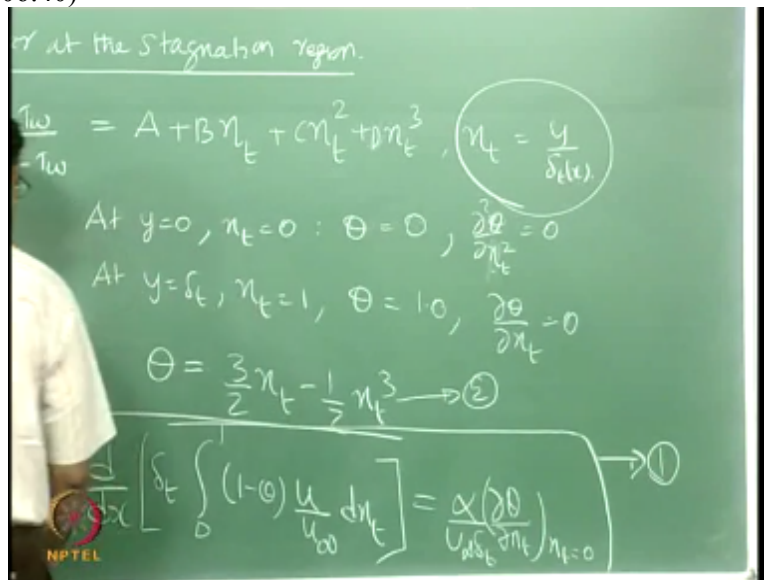 06:40)
at the stagnation region.
Tw
-Tw = A + Bηt + Cηt² + Dηt³, ηt = y/δt(x).
At y=0, ηt=0 : θ = 0, ∂²θ/∂ηt² = 0
At y=δt, ηt=1, θ = 1.0, ∂θ/∂ηt = 0
θ = 3/2 ηt - 1/2 ηt³ → ②
d/dx [δt ∫₀¹ (1-θ) u/u∞ dηt] = α/(u∞δt) (∂θ/∂ηt)ηt=0 → ①
NPTEL